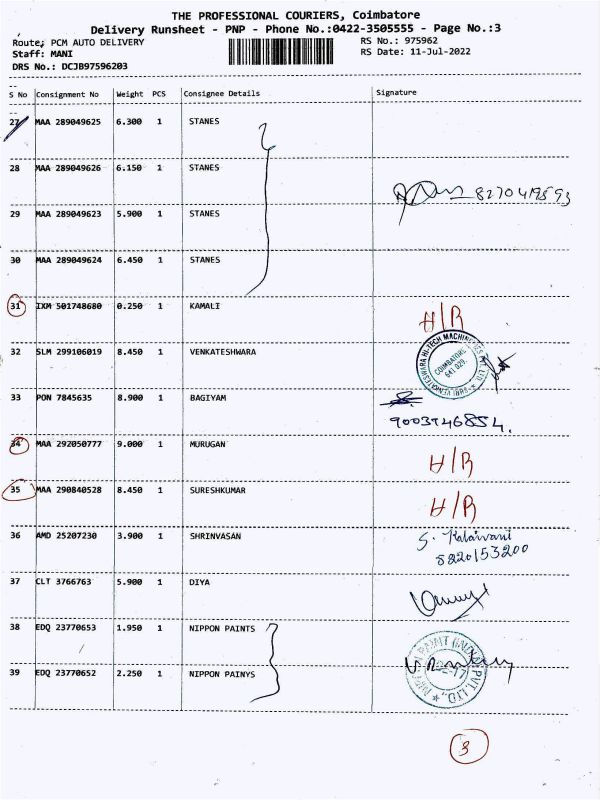 THE PROFESSIONAL COURIERS, Coimbatore
Delivery Runsheet - PNP - Phone No.:0422-3505555 - Page No.:3
Route: PCM AUTO DELIVERY
RS No.: 975962
Staff: MANI
RS Date: 11-Jul-2022
DRS No.: DCJB97596203
S No Consignment No Weight PCS Consignee Details Signature
27 MAA 289049625 6.300 1 STANES
28 MAA 289049626 6.150 1 STANES
29 MAA 289049623 5.900 1 STANES
30 MAA 289049624 6.450 1 STANES
31 IXM 501748680 0.250 1 KAMALI H/R
32 SLM 299106019 8.450 1 VENKATESHWARA
SHRI VENKATESWARA HI-TECH MACHINERIES PVT LTD
COIMBATORE
641 029.
33 PON 7845635 8.900 1 BAGIYAM
9003946854.
34 MAA 292050777 9.000 1 MURUGAN H/R
35 MAA 290840528 8.450 1 SURESHKUMAR H/R
36 AMD 25207230 3.900 1 SHRINVASAN S. Kalaivani
8220153200
37 CLT 3766763 5.900 1 DIYA
38 EDQ 23770653 1.950 1 NIPPON PAINTS
39 EDQ 23770652 2.250 1 NIPPON PAINYS
3